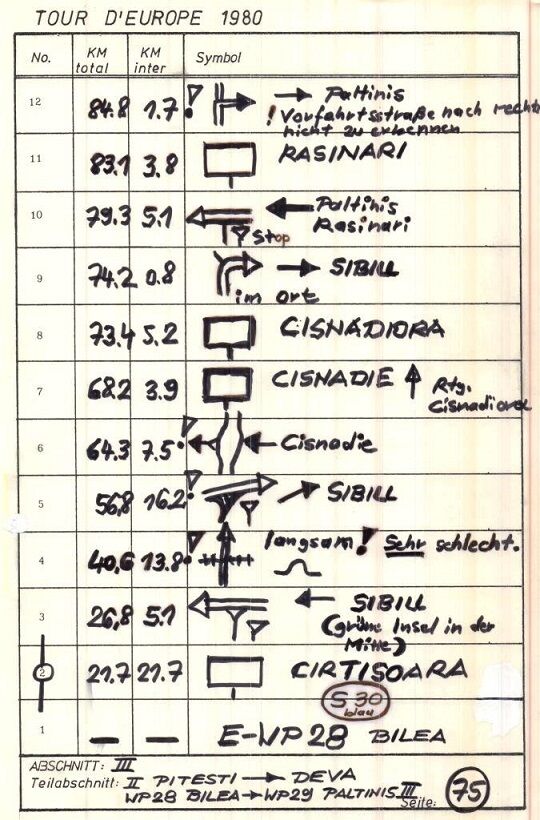 TOUR D'EUROPE 1980
No. KM total KM inter Symbol
12 84.8 1.7 ! → Paltinis
! Vorfahrtsstraße nach rechts
nicht zu erkennen
11 83.1 3.8 RASINARI
10 79.3 5.1 Stop ← Paltinis
Rasinari
9 74.2 0.8 → SIBILL
im ort
8 73.4 5.2 CISNADIORA
7 68.2 3.9 CISNADIE ↑ Rtg.
Cisnadiora
6 64.3 7.5 ! ← Cisnadie
5 56,8 16.2 ! SIBILL
4 40,6 13.8 ! langsam! Sehr schlecht.
3 26,8 5.1 ← SIBILL
(grüne Insel in der
Mitte)
2 21.7 21.7 CIRTISOARA
S 30
blau
1 — — E-WP 28 BILEA
ABSCHNITT: III
Teilabschnitt: II PITESTI → DEVA
WP28 BILEA → WP29 PALTINIS III
Seite: 75